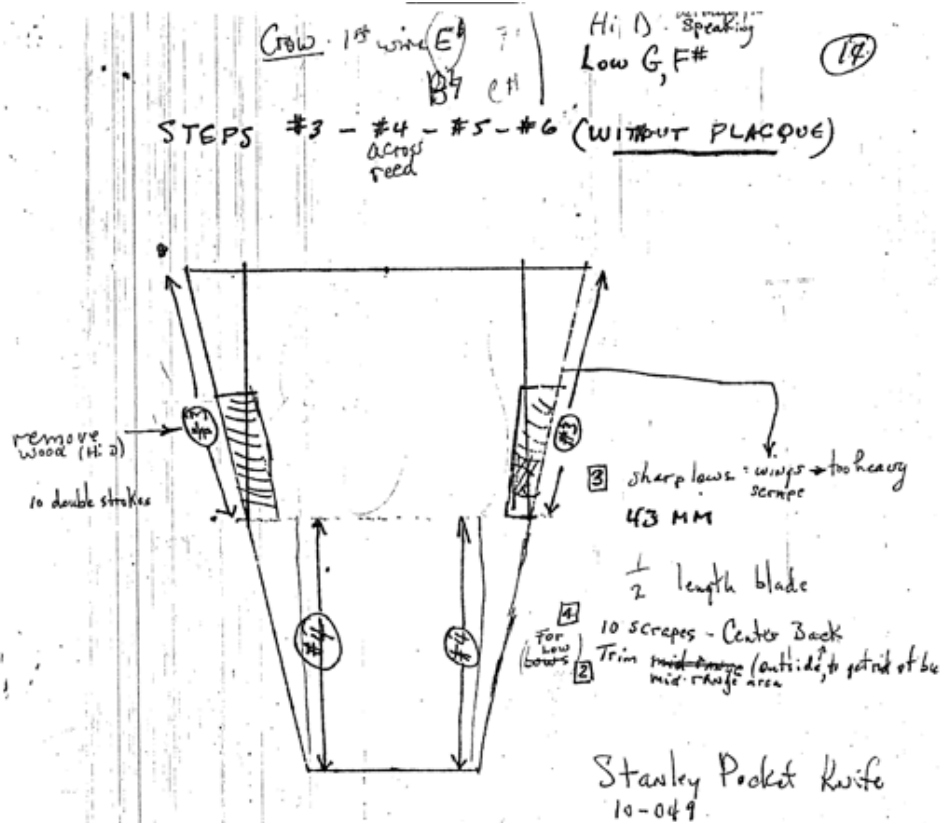 Crow 1st wire Eb
Hi D
Speaking
Low G, F#
14
STEPS #3 - #4 - #5 - #6 (WITHOUT PLACQUE)
across
reed
#3
remove
wood (Hi D)
10 double strokes
3 sharp lows: wings → too heavy
scrape
43 MM
1/2 length blade
4
(For
Low
Lows)
10 scrapes - Center Back
2 Trim mid-range (outside, to get rid of
mid-range area
#4
#4
Stanley Pocket Knife
10-049